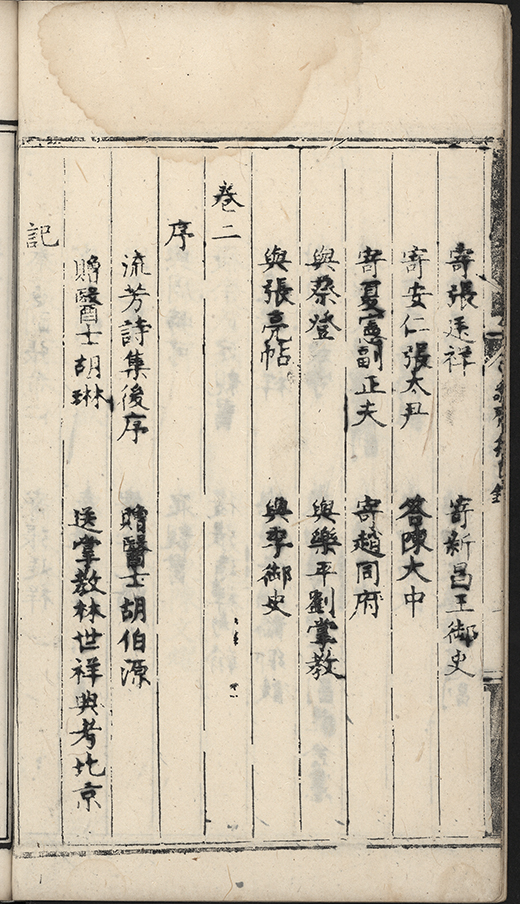 寄張廷祥 寄新昌王御史
寄安仁張太尹 答陳大中
寄夏憲副正夫 寄趙同府
與蔡登 與樂平劉掌教
與張亮帖 與李御史
卷二
序
流芳詩集後序 贈醫士胡伯源
贈醫士胡琳 送掌教林世祥典考北京
記